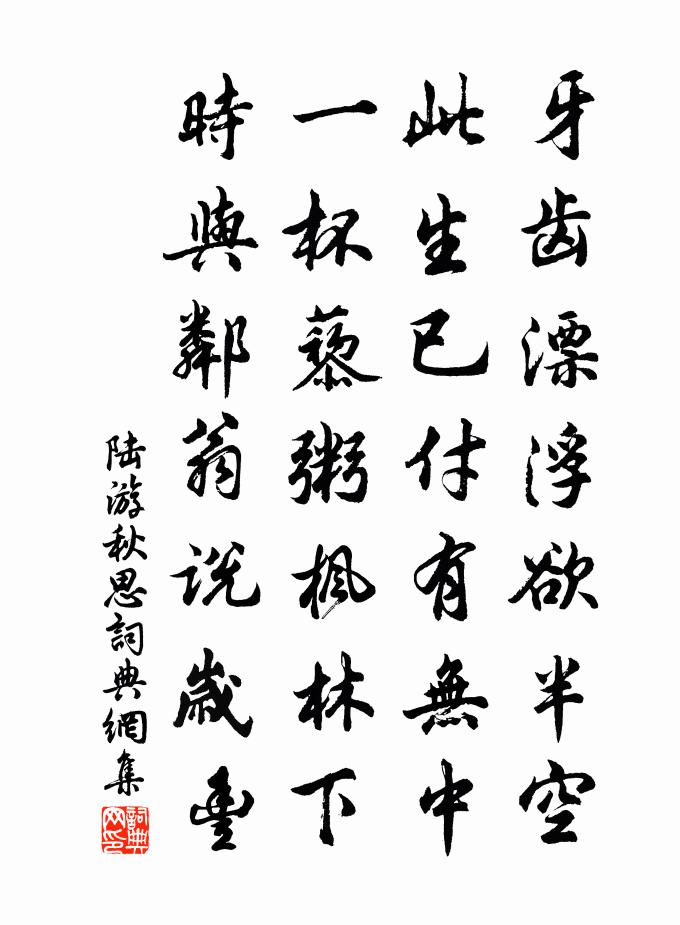 牙齿漂浮欲半空
此生已付有無中
一杯藜粥楓林下
時與鄰翁説歲豐
陸游秋思詞典網集
詞典网印